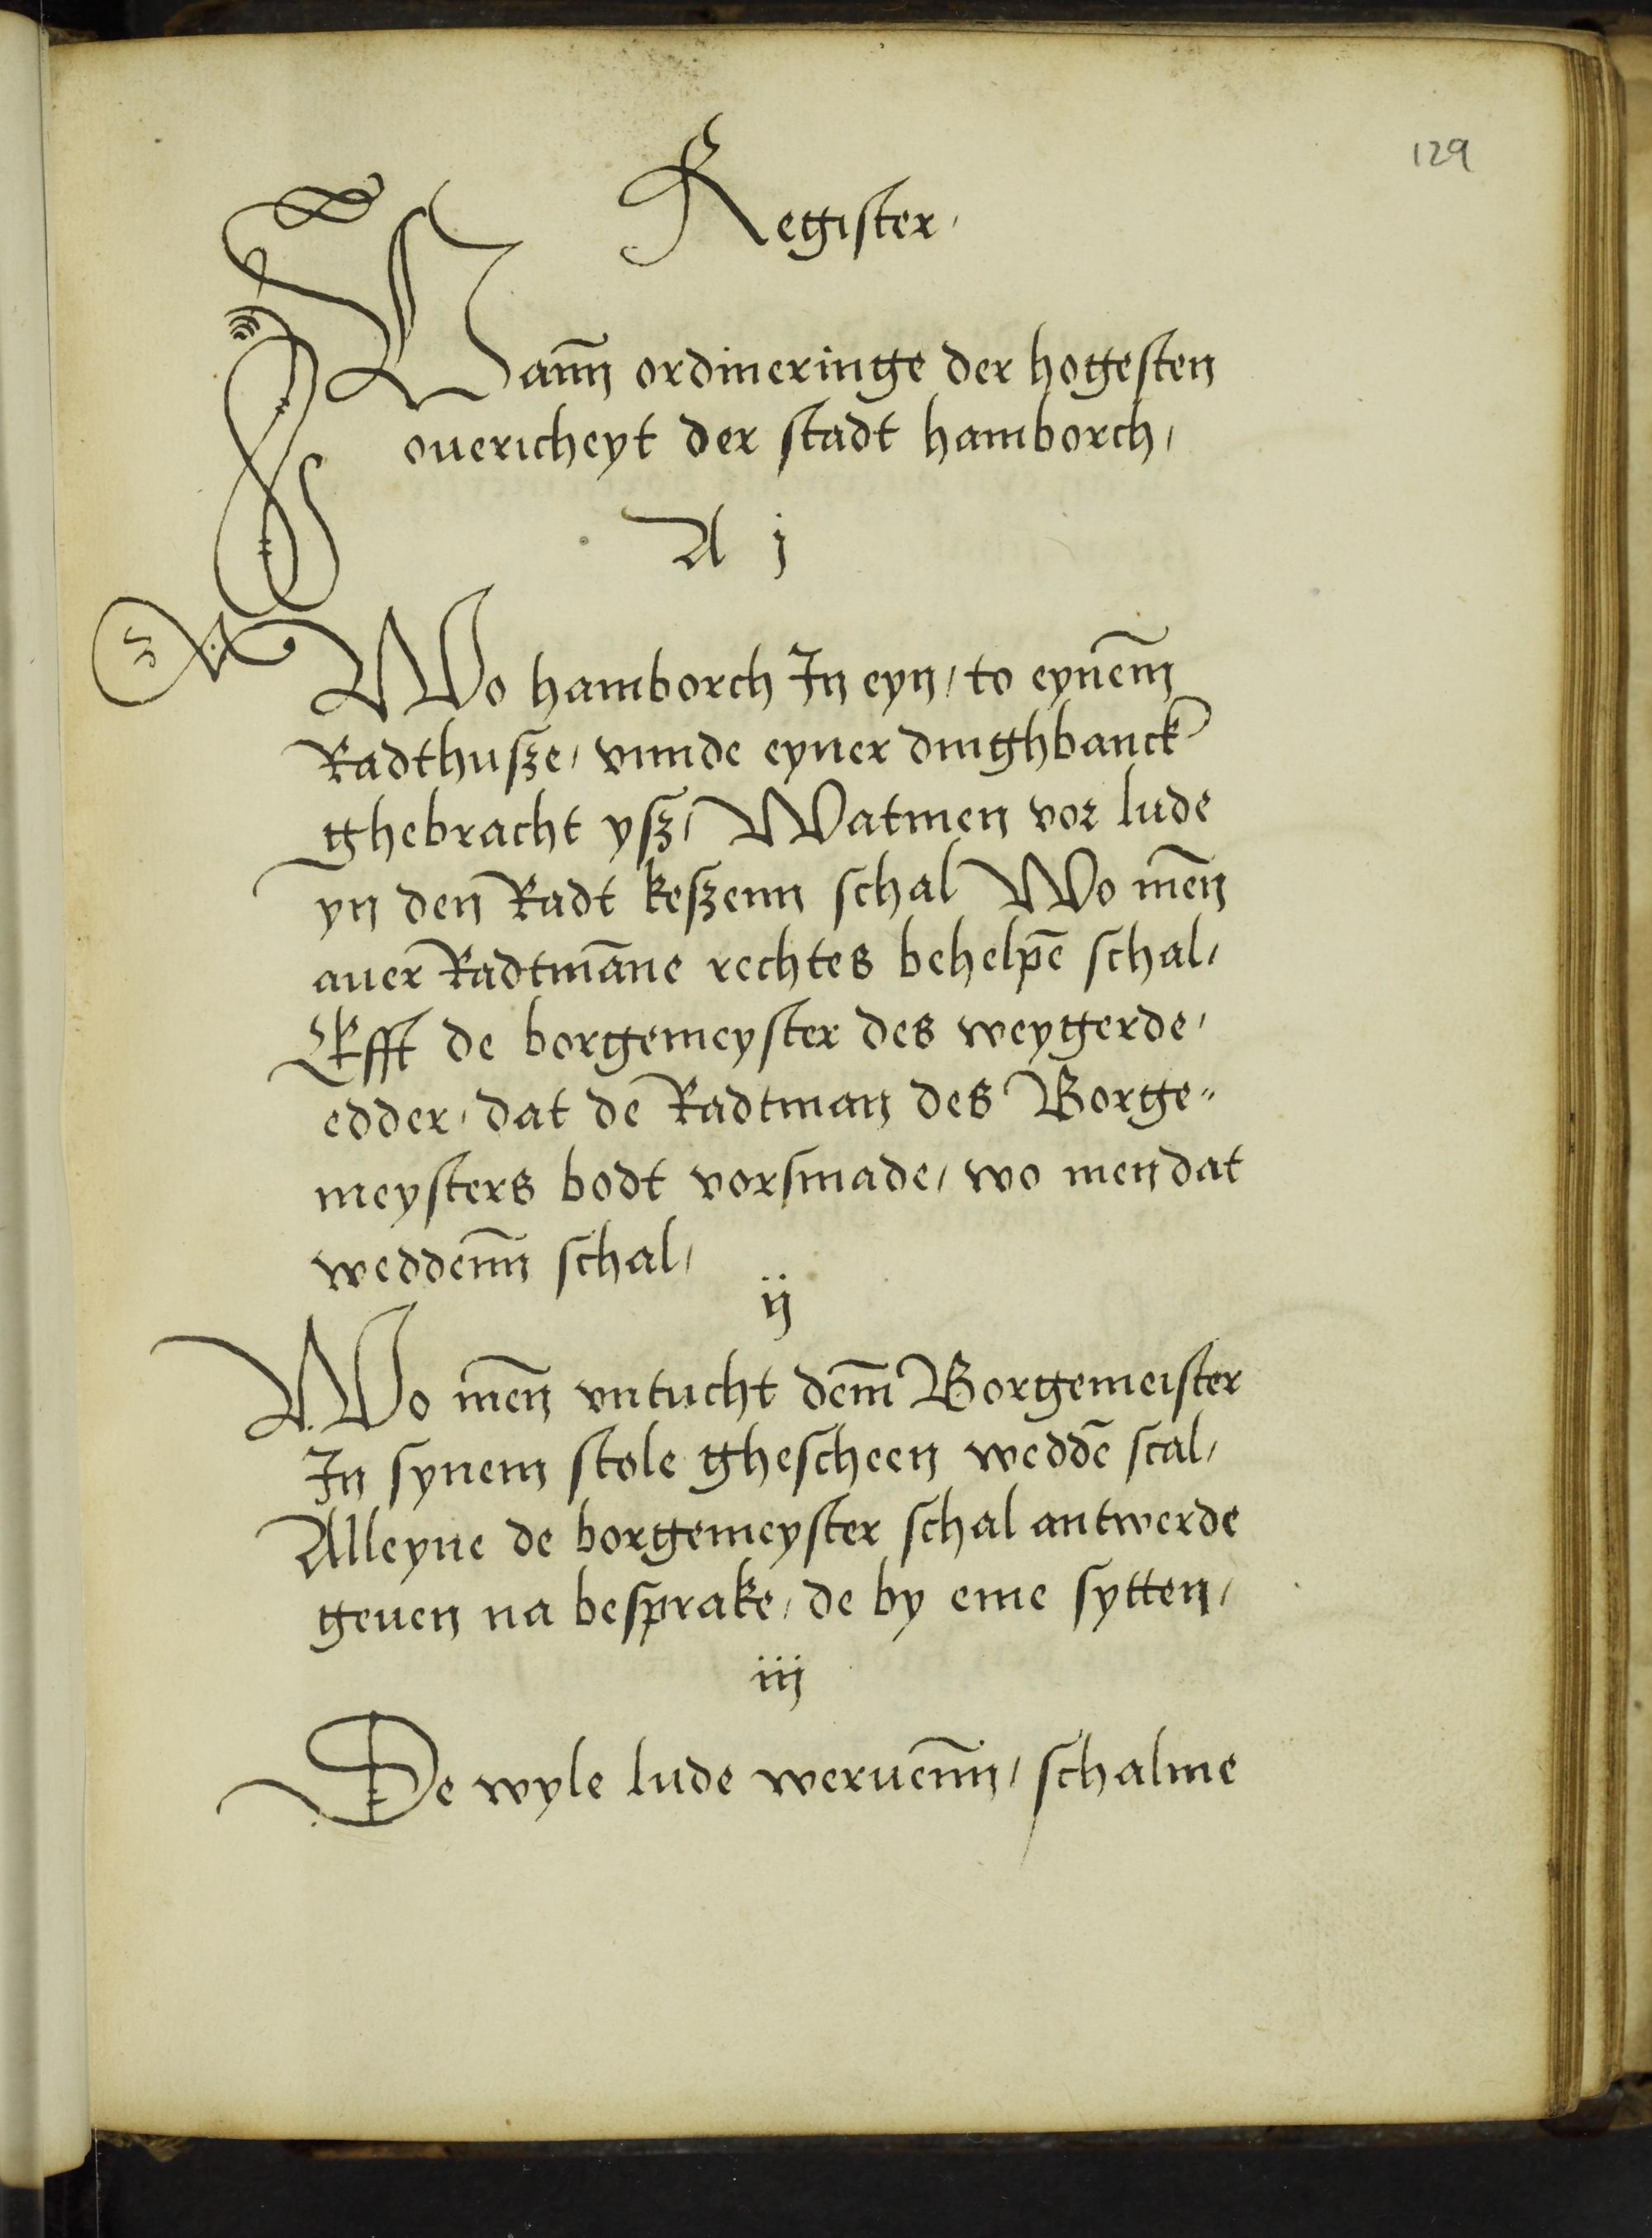 129
Register,
Vann̄ ordineringe der hogesten
ouericheyt der stadt hamborch,
A j
Wo hamborch In eyn, to eynem̄
Radthusze, vnnde eyner dinghbanck
ghebracht ysz, Watmen vor lude
yn den Radt keszenn schal Wo men̄
auer Radtmāne rechtes behelpē schal,
Efft de borgemeyster des weygerde,
edder, dat de Radtman des Borge„
meysters bodt vorsmade, wo men dat
weddenn̄ schal,
ij
Wo men̄ vntucht dem̄ Borgemeister
In synem stole ghescheen weddē scal,
Alleyne de borgemeyster schal antwerde
geuen na besprake, de by eme sytten,
iij
De wyle lude weruenn̄, schalme